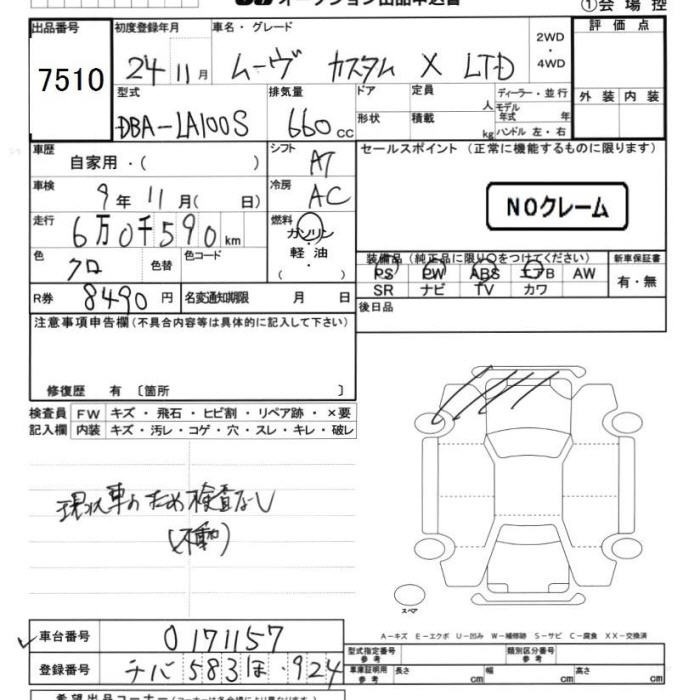 オークション出品申込書
①会場控
出品番号 初度登録年月 車名・グレード 2WD・4WD 評価点
7510 24年11月 ムーヴ カスタム X LTD
型式 排気量 ドア 定員 人 ディーラー・並行 外装 内装
DBA-LA100S 660cc 形状 積載 kg モデル年式 年 ハンドル 左・右
車歴 自家用・( ) シフト AT セールスポイント(正常に機能するものに限ります)
車検 9年11月( 日) 冷房 AC
NOクレーム
走行 6万0千590km 燃料 ガソリン・軽油・( )
色 クロ 色替 色コード
装備品(純正品に限り○をつけてください) 新車保証書
PS PW ABS エアB AW 有・無
SR ナビ TV カワ
R券 8490円 名変通知期限 月 日 後日品
注意事項申告欄(不具合内容等は具体的に記入して下さい)
修復歴 有 〔箇所 〕
検査員記入欄 FW キズ・飛石・ヒビ割・リペア跡・×要
内装 キズ・汚レ・コゲ・穴・スレ・キレ・破レ
現状車のため検査なし
(不動)
スペア
A-キズ E-エクボ U-凹み W-補修跡 S-サビ C-腐食 XX-交換済
車台番号 0171157
型式指定番号 参考 類別区分番号 参考
登録番号 チバ 583 ほ ・924
車庫証明用 参考 長さ cm 幅 cm 高さ cm
希望出品コーナー